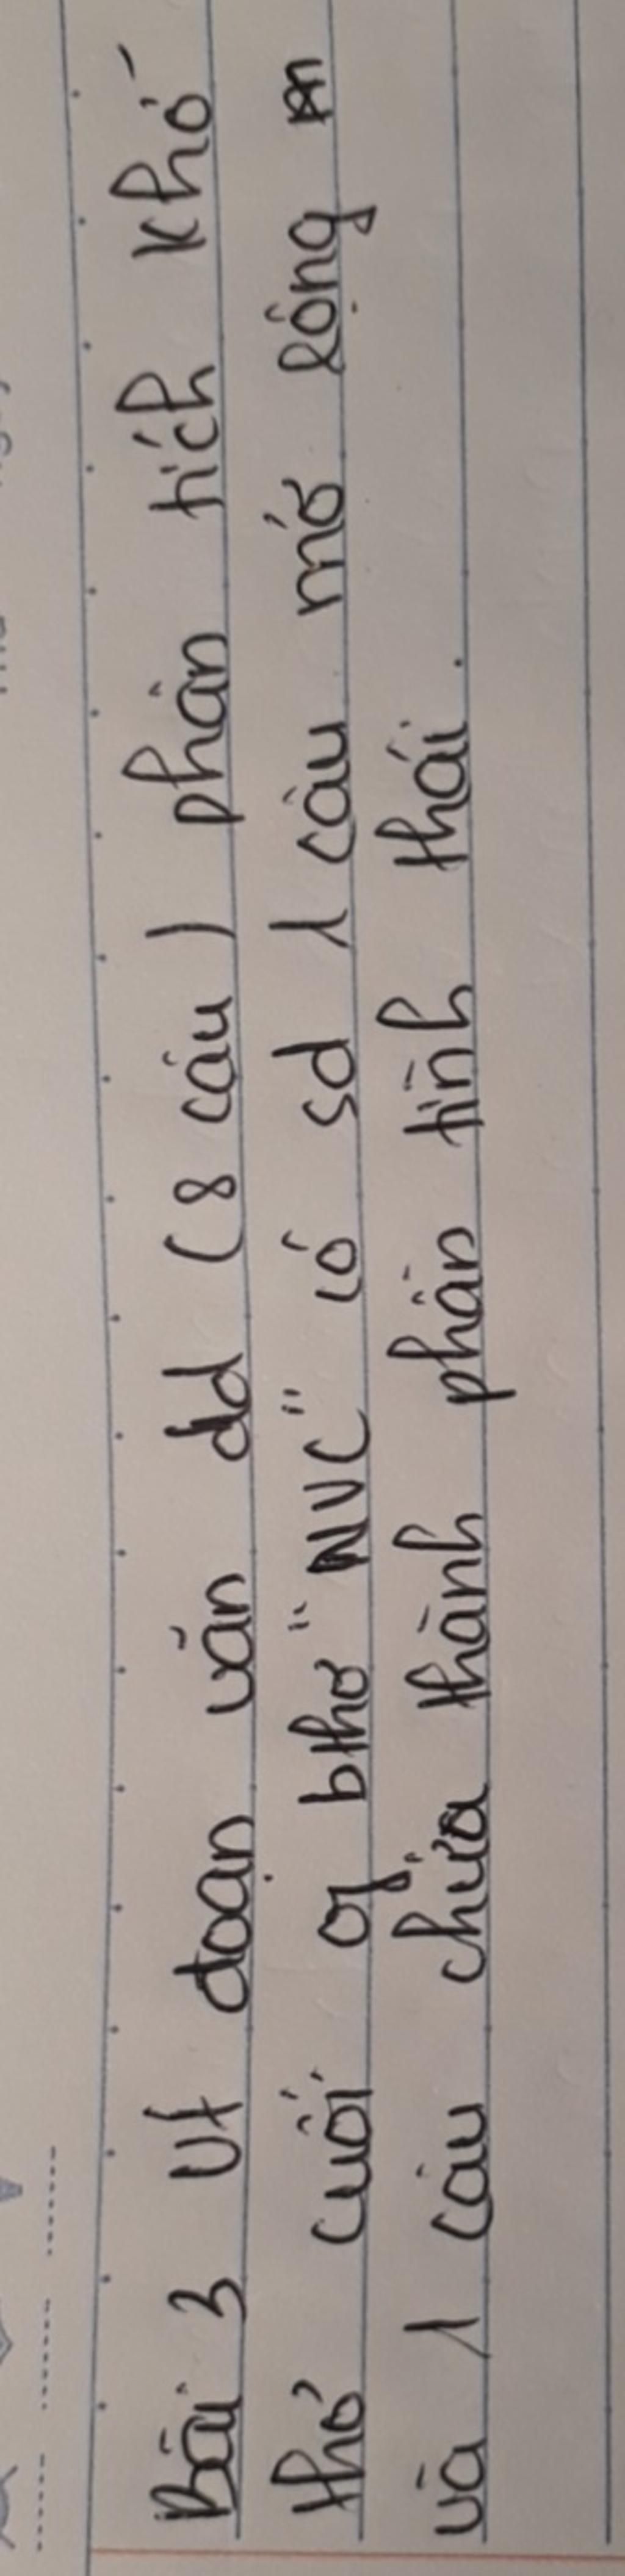 Bài 3 Vt đoạn văn dd (8 câu) phân tích khổ
thơ cuối of bthơ "NVC" có sd 1 câu mở rộng
và 1 câu chứa thành phần tình thái.